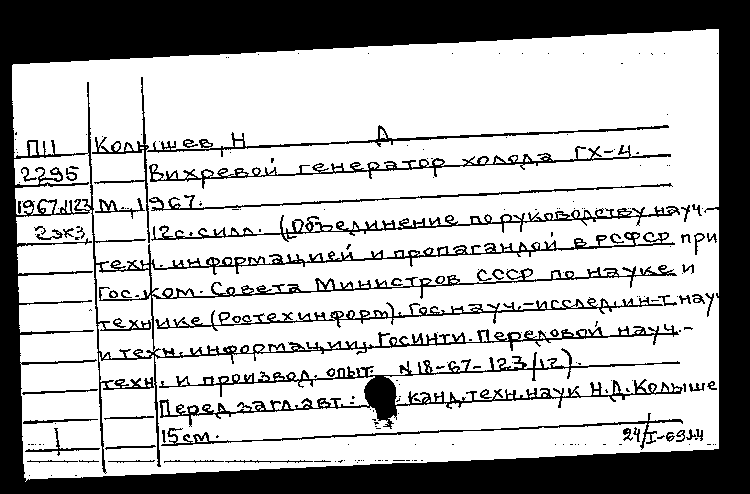 П11 Колышев, Н Д
2295 Вихревой генератор холода ГХ-4.
1967.N123 М., 1967.
2 экз, 12 с. с илл. (Объединение по руководству науч.-
техн. информацией и пропагандой в РСФСР при
Гос. ком. Совета Министров СССР по науке и
технике (Ростехинформ). Гос. науч.-исслед. ин-т. науч
и техн. информации. ГОСИНТИ. Передовой науч.-
техн. и производ. опыт. N 18-67-123/12).
Перед загл. авт.: канд. техн. наук Н.Д. Колыше
15 см.
24/I-69